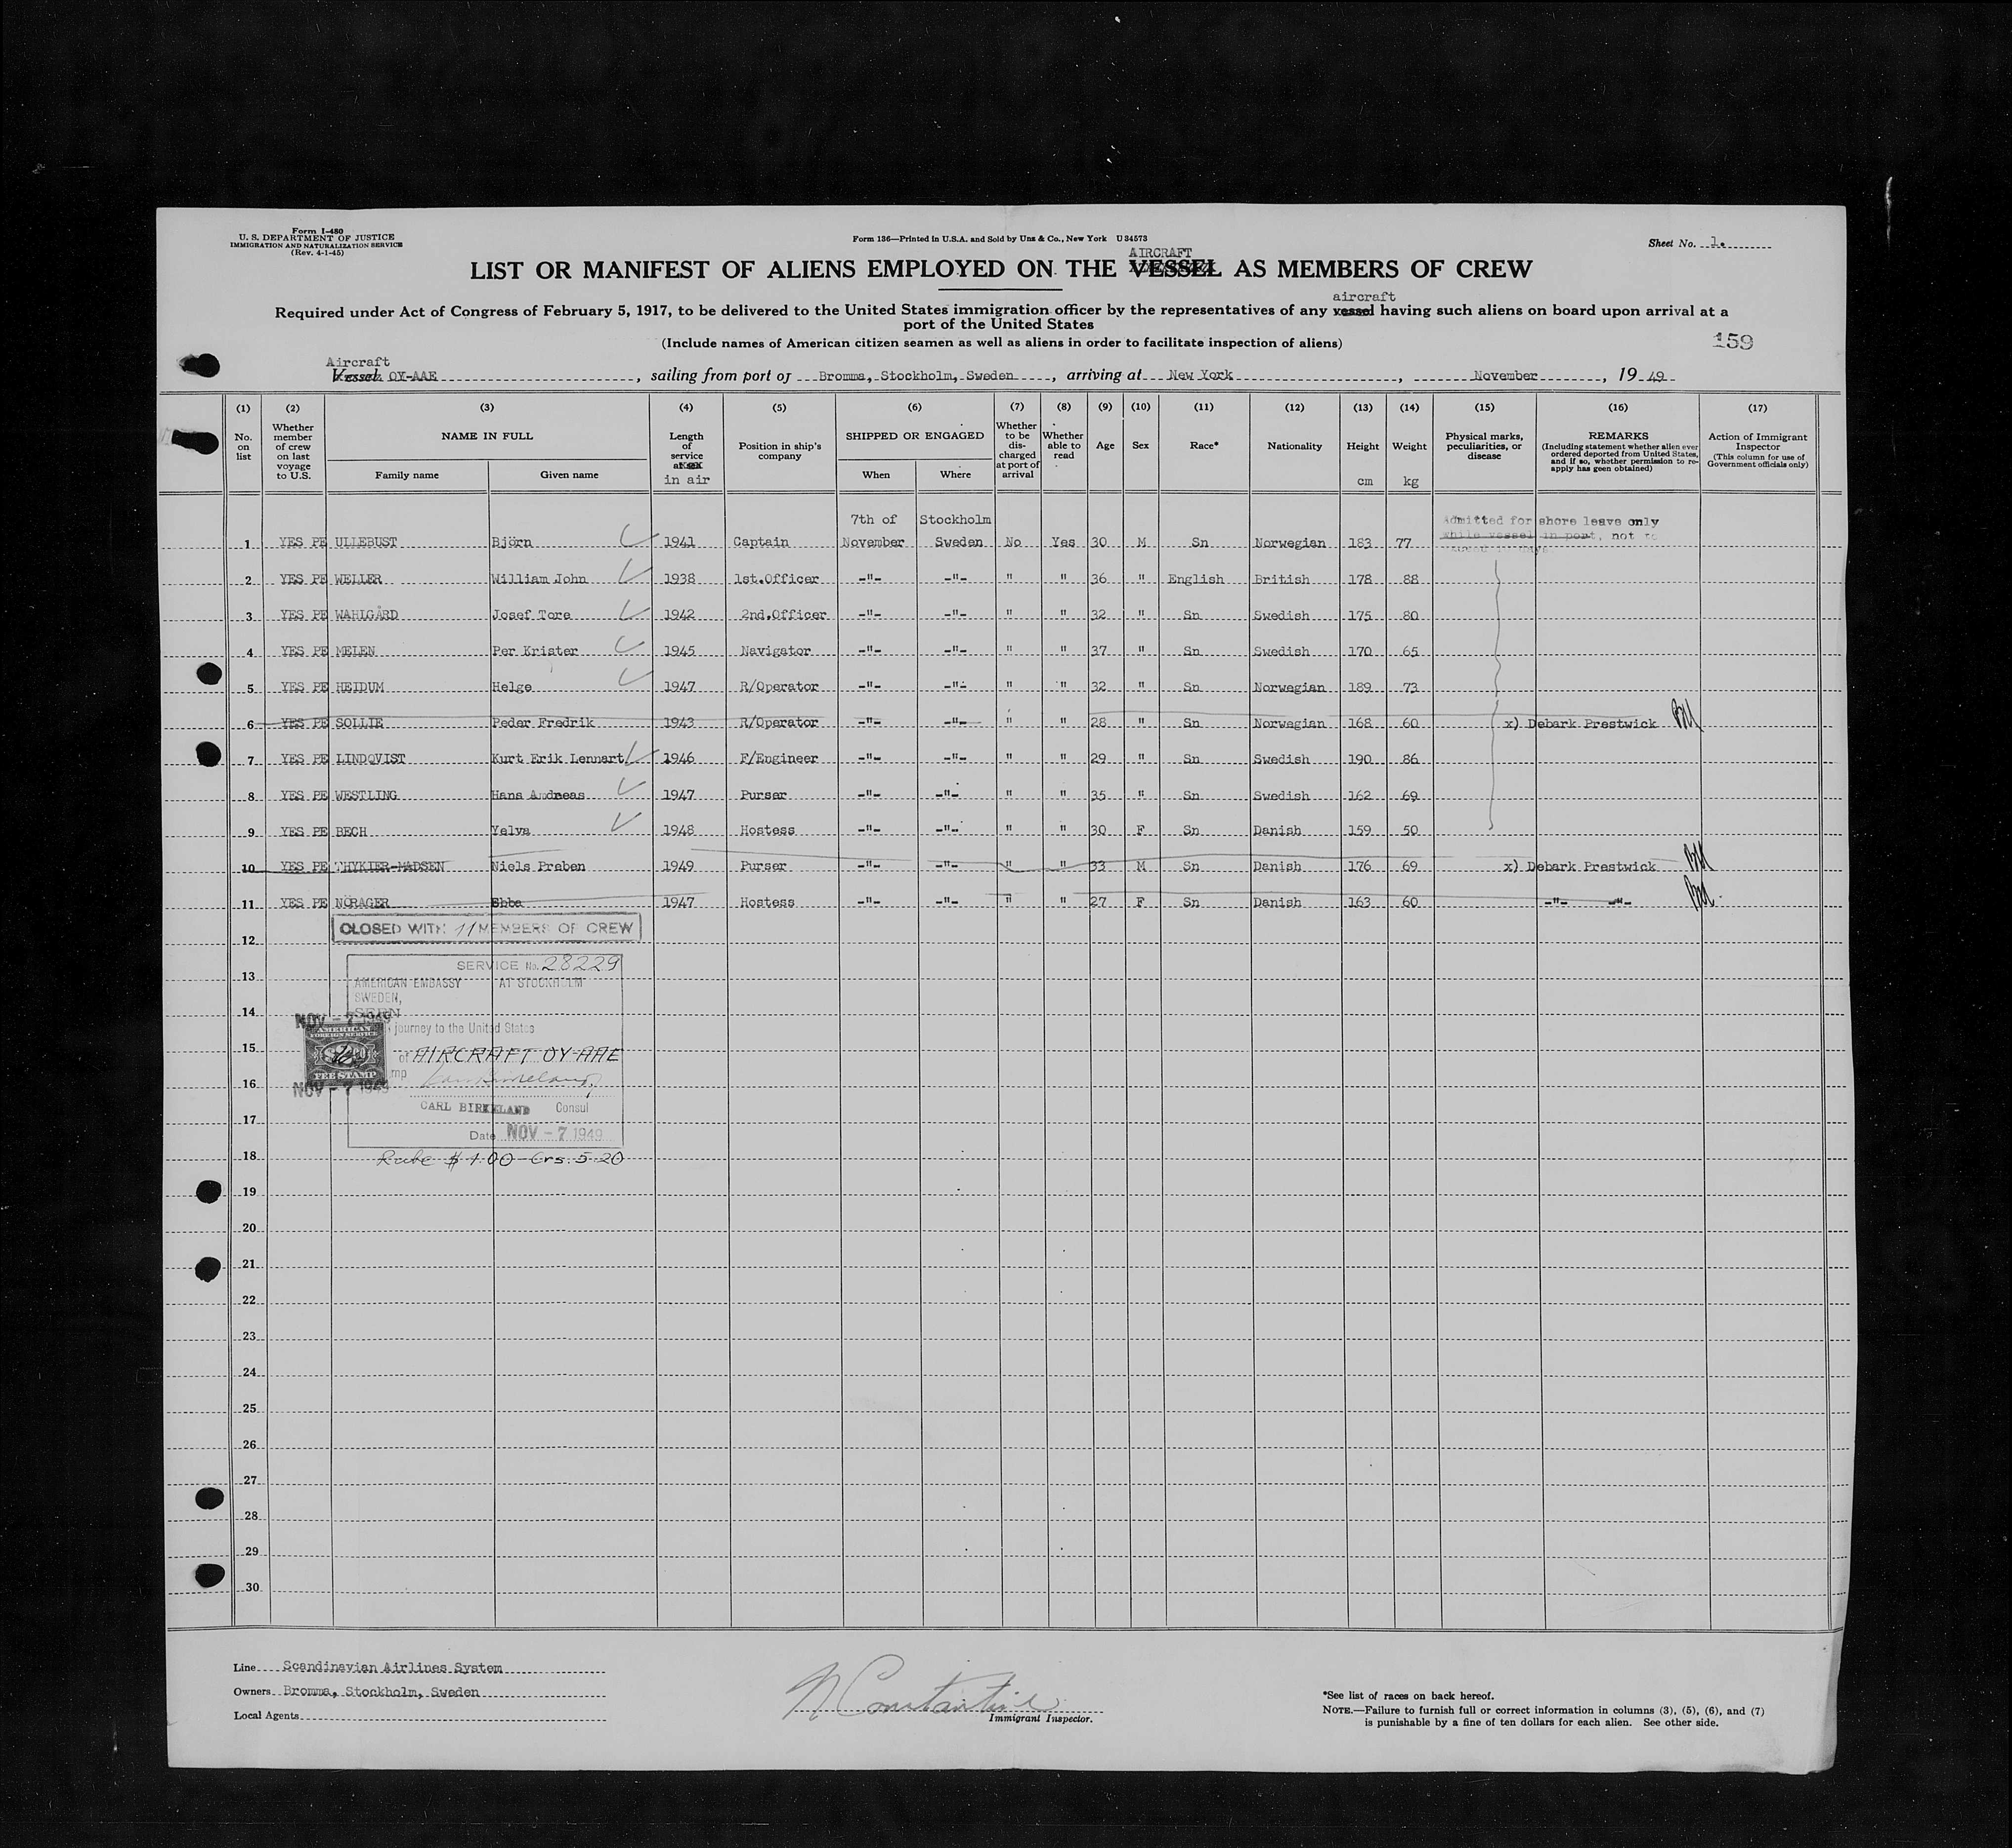 Form I-480
U. S. DEPARTMENT OF JUSTICE
IMMIGRATION AND NATURALIZATION SERVICE
(Rev. 4-1-45)
Form 136—Printed in U.S.A. and Sold by Unz & Co., New York U 34573
Sheet No. 1.
AIRCRAFT
LIST OR MANIFEST OF ALIENS EMPLOYED ON THE VESSEL AS MEMBERS OF CREW
aircraft
Required under Act of Congress of February 5, 1917, to be delivered to the United States immigration officer by the representatives of any vessel having such aliens on board upon arrival at a
port of the United States
(Include names of American citizen seamen as well as aliens in order to facilitate inspection of aliens)
159
Aircraft
Vessel OY-AAE, sailing from port of Bromma, Stockholm, Sweden, arriving at New York, November, 19 49
(1) (2) (3) (4) (5) (6) (7) (8) (9) (10) (11) (12) (13) (14) (15) (16) (17)
No. on list
Whether member of crew on last voyage to U.S.
NAME IN FULL
Family name
Given name
Length of service at sea
in air
Position in ship's company
SHIPPED OR ENGAGED
When
Where
Whether to be discharged at port of arrival
Whether able to read
Age
Sex
Race*
Nationality
Height
cm
Weight
kg
Physical marks, peculiarities, or disease
REMARKS
(Including statement whether alien ever ordered deported from United States, and if so, whether permission to re-apply has geen obtained)
Action of Immigrant Inspector
(This column for use of Government officials only)
7th of Stockholm Admitted for shore leave only
1 YES PE ULLEBUST Björn 1941 Captain November Sweden No Yes 30 M Sn Norwegian 183 77 while vessel in port, not to
2 YES PE WELLER William John 1938 1st.Officer -"- -"- " " 36 " English British 178 88
3 YES PE WAHLGÅRD Josef Tore 1942 2nd.Officer -"- -"- " " 32 " Sn Swedish 175 80
4 YES PE MELEN Per Krister 1945 Navigator -"- -"- " " 37 " Sn Swedish 170 65
5 YES PE HEIDUM Helge 1947 R/Operator -"- -"- " " 32 " Sn Norwegian 189 73
6 YES PE SOLLIE Peder Fredrik 1943 R/Operator -"- -"- " " 28 " Sn Norwegian 168 60 x) Debark Prestwick
7 YES PE LINDQVIST Kurt Erik Lennart 1946 F/Engineer -"- -"- " " 29 " Sn Swedish 190 86
8 YES PE WESTLING Hans Andreas 1947 Purser -"- -"- " " 35 " Sn Swedish 162 69
9 YES PE BECH Yelva 1948 Hostess -"- -"- " " 30 F Sn Danish 159 50
10 YES PE THYKIER-MADSEN Niels Preben 1949 Purser -"- -"- " " 33 M Sn Danish 176 69 x) Debark Prestwick
11 YES PE NÖRAGER Ebba 1947 Hostess -"- -"- " " 27 F Sn Danish 163 60 -"- -"-
CLOSED WITH 11 MEMBERS OF CREW
12
SERVICE No. 28229
13
AMERICAN EMBASSY AT STOCKHOLM
SWEDEN,
14
SEEN
NOV - 7 1949
journey to the United States
AMERICAN
FOREIGN SERVICE
15
of AIRCRAFT OY-AAE
FEE STAMP
16
NOV - 7 1949
CARL BIRKELAND Consul
17
Date NOV - 7 1949
18
Rate $ 1.00 - Crs. 5.20
19
20
21
22
23
24
25
26
27
28
29
30
Line Scandinavian Airlines System
Owners Bromma, Stockholm, Sweden
Local Agents
N Constantine
Immigrant Inspector.
*See list of races on back hereof.
NOTE.—Failure to furnish full or correct information in columns (3), (5), (6), and (7)
is punishable by a fine of ten dollars for each alien. See other side.